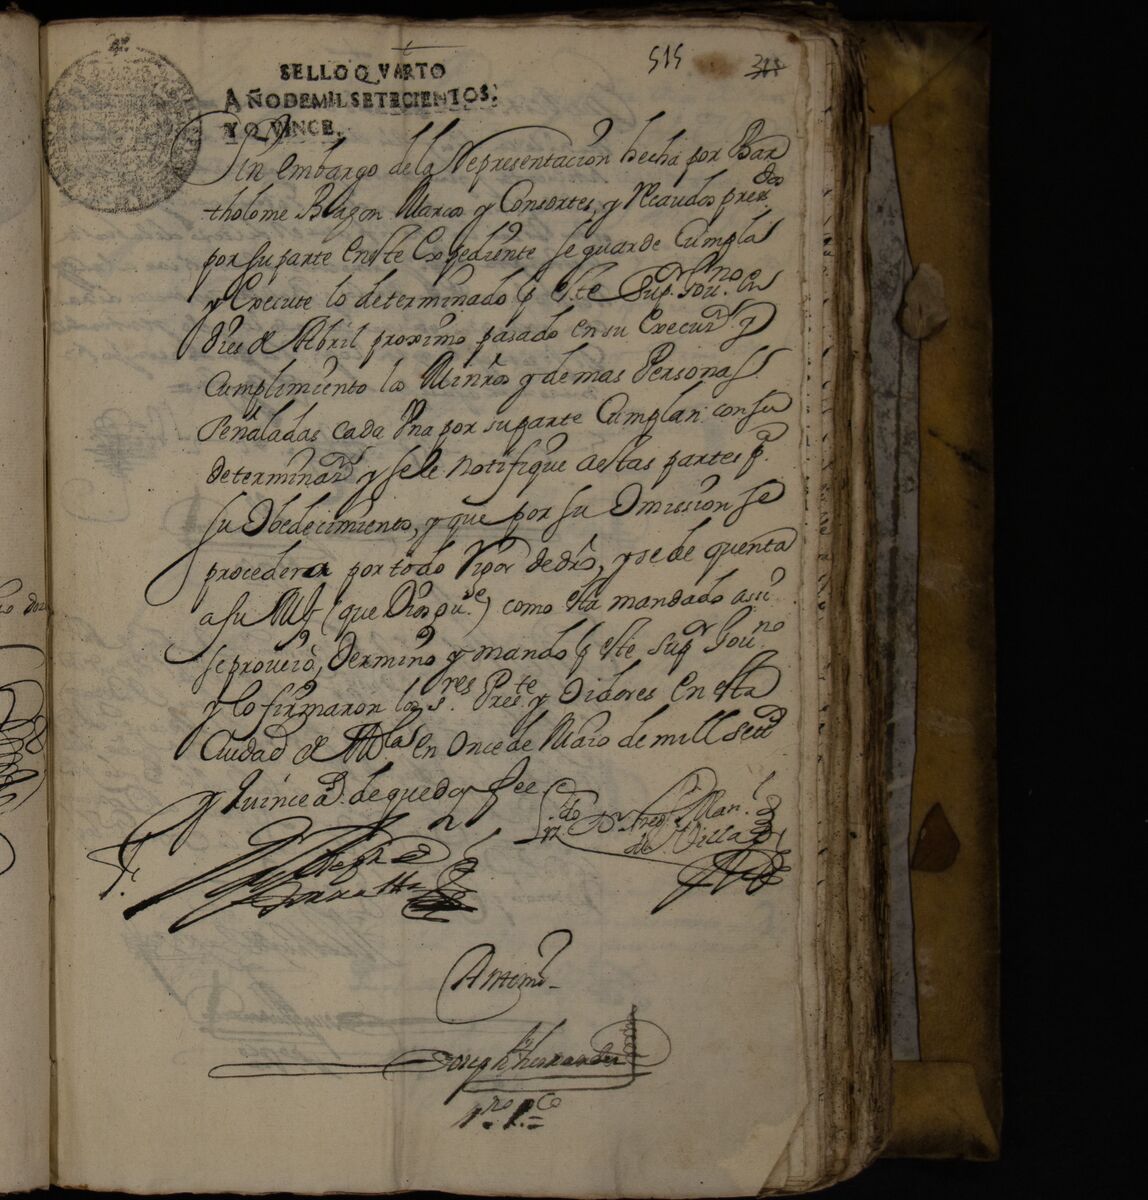 515 315
SELLO QVARTO
AÑO DE MIL SETECIENTOS,
Y QVINCE.
Sin embargo de la Representacion hecha por Bar
tholome Blagon Marcos y Consortes, y recaudos pres.dos
por su parte en este Expediente se guarde Cumpla
y Execute lo determinado p este Sup.r Gou.no en
dies de Abril proximo pasado en su Execuz.n y
Cumplimiento los Minros y demas Personas
señaladas cada Una por su parte Cumplan con su
determinaz.n y se le notifique a estas partes p.a
su Obedecimiento, y que por su Omission se
procedera por todo Rigor de dro, y se de quenta
a su Mg (que Dios gu.e) como esta mandado asi
se proueió, determinó y mandó p este Sup.r Gou.no
y lo firmaron los s.res Pres.te y Oidores en esta
Ciudad de M.la en Once de Maio de mill Setec
y quince a.s de que doy fee
Torralba
de Villa
Antemi
Joseph hernandez